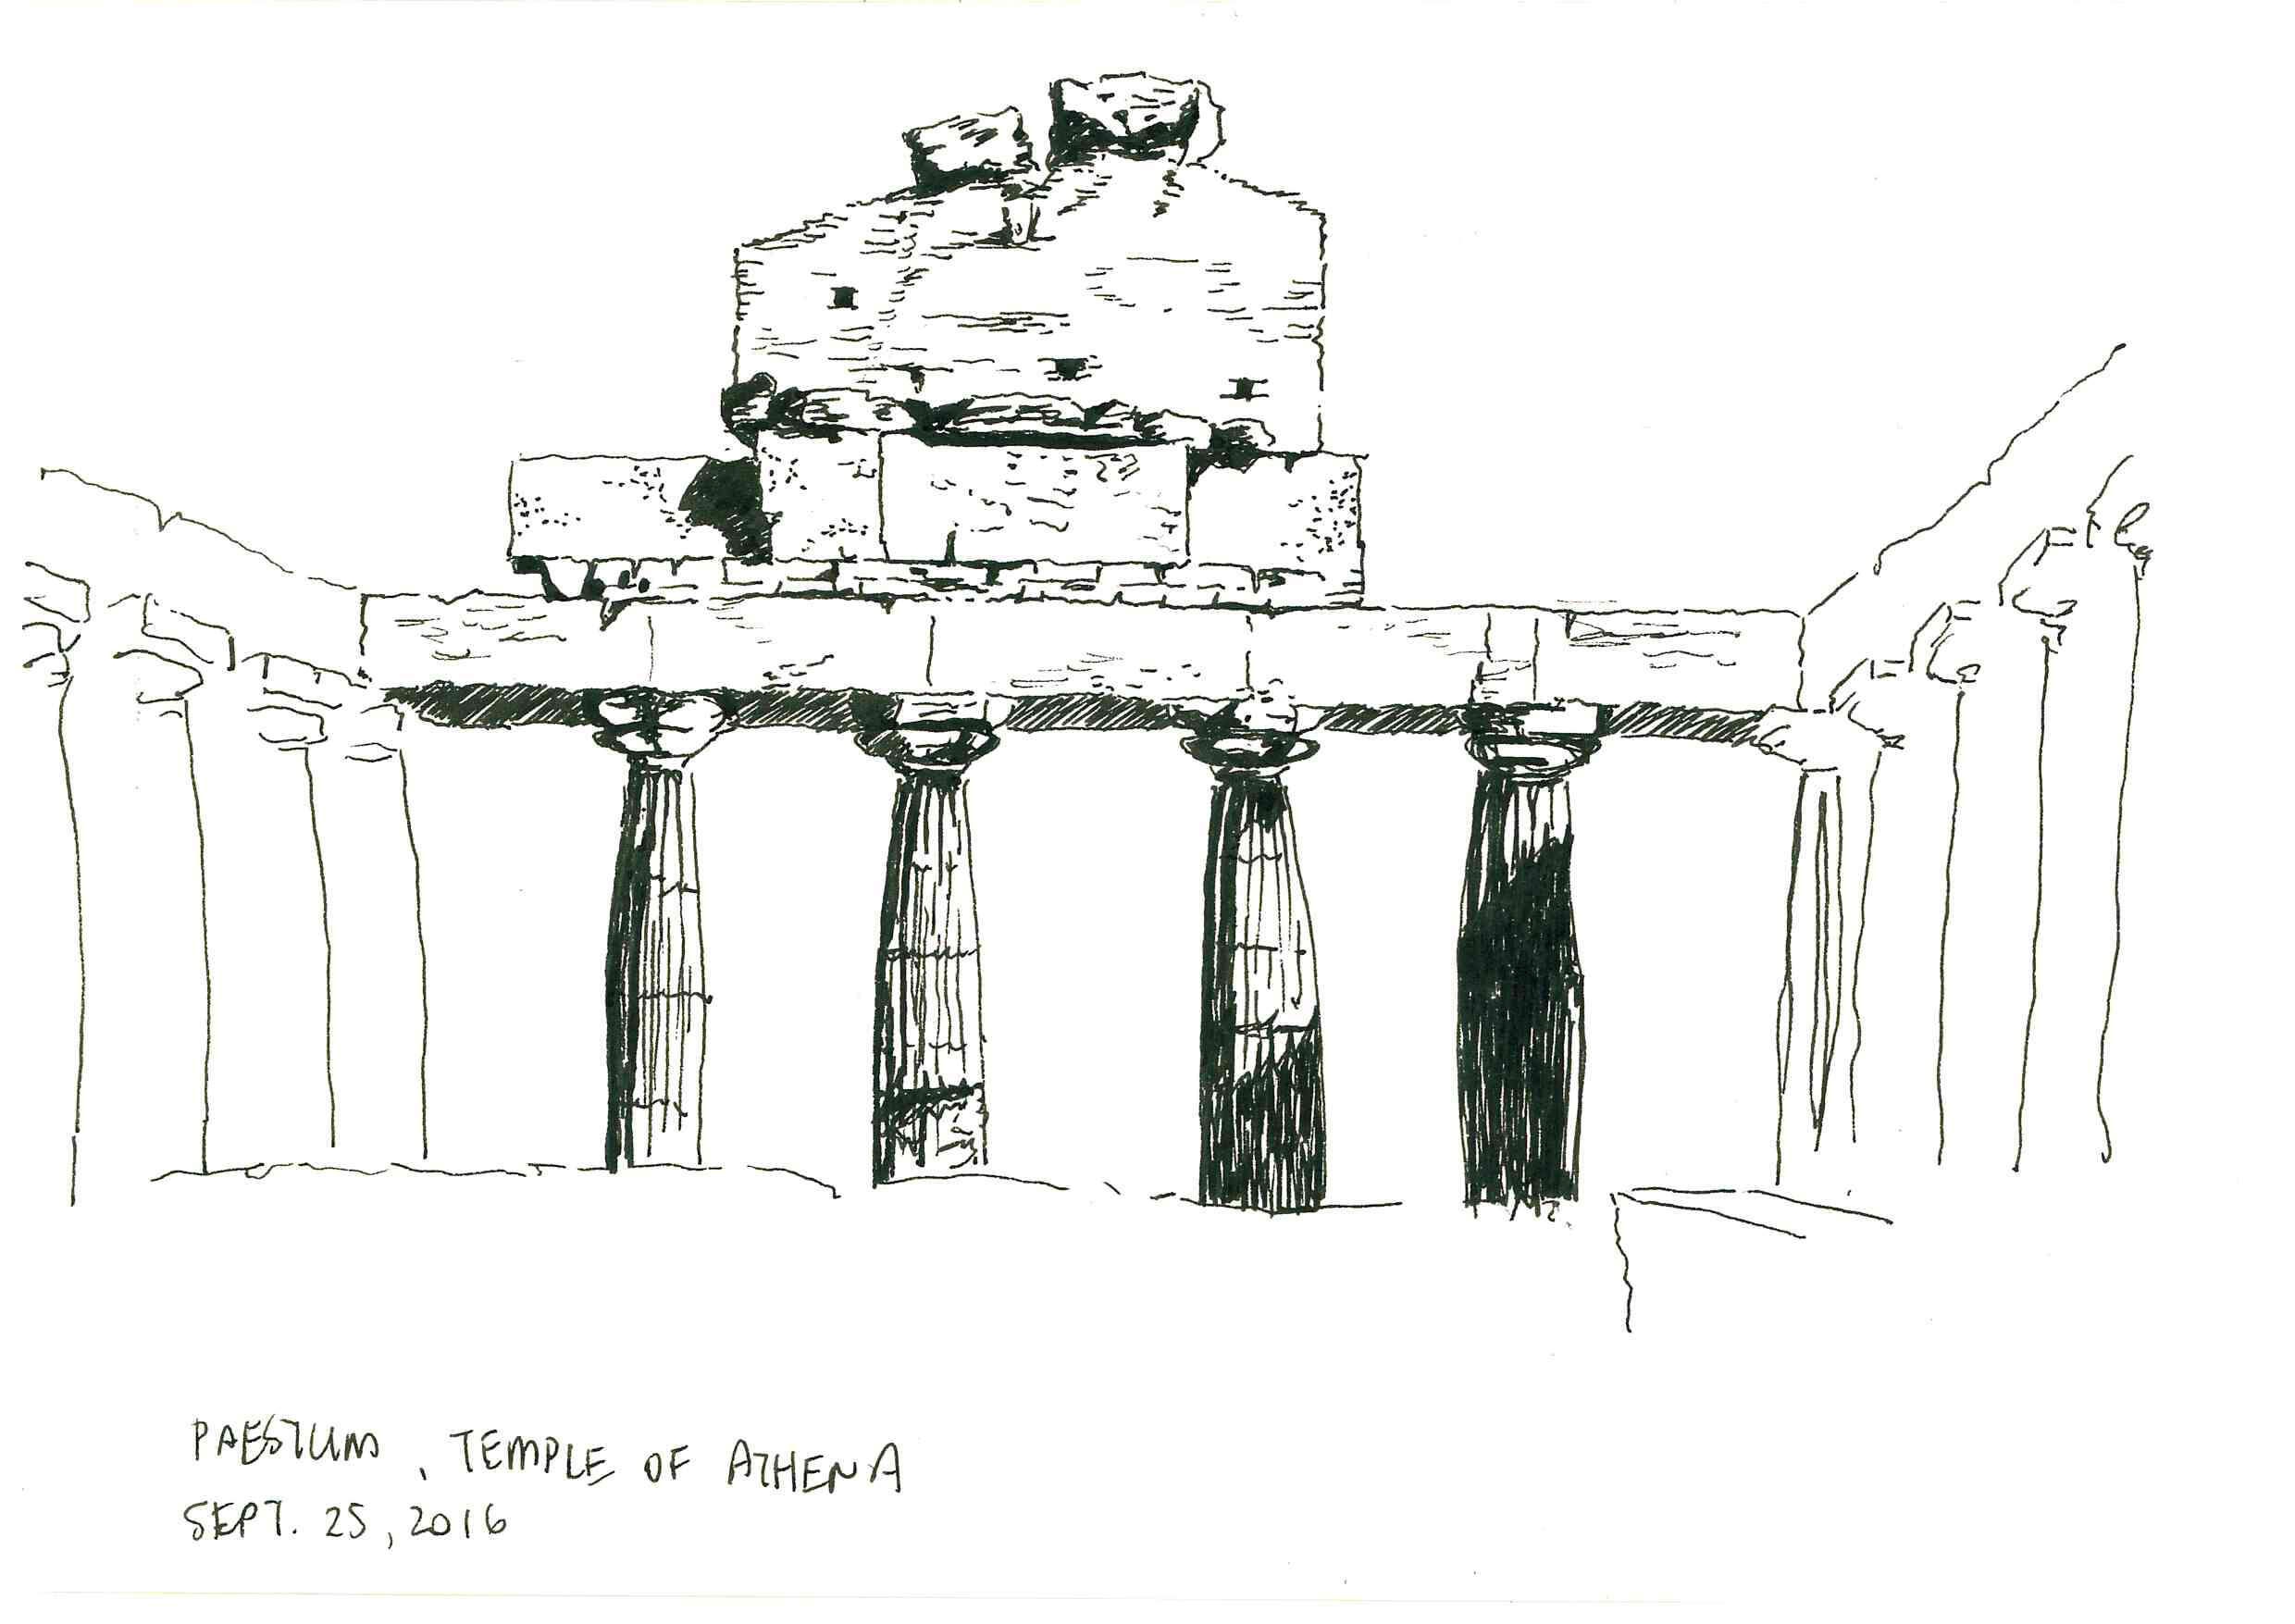 PAESTUM, TEMPLE OF ATHENA
SEPT. 25, 2016